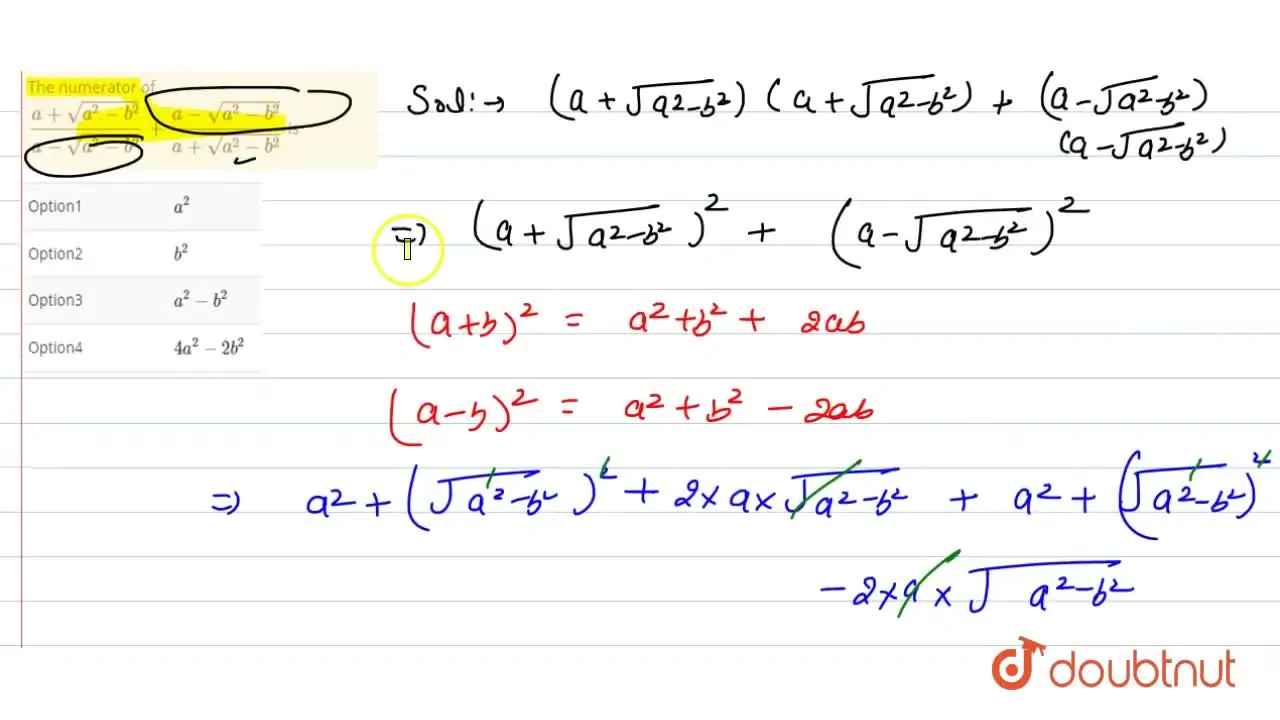 The numerator of
a + √(a² − b²) / a − √(a² − b²) + a − √(a² − b²) / a + √(a² − b²) is
Option1 a²
Option2 b²
Option3 a² − b²
Option4 4a² − 2b²
Sol:→ (a + √(a²−b²)) (a + √(a²−b²)) + (a − √(a²−b²))
(a − √(a²−b²))
⇒ (a + √(a²−b²))² + (a − √(a²−b²))²
(a+b)² = a² + b² + 2ab
(a−b)² = a² + b² − 2ab
⇒ a² + (√(a²−b²))² + 2 × a × √(a²−b²) + a² + (√(a²−b²))²
− 2 × a × √(a²−b²)
doubtnut